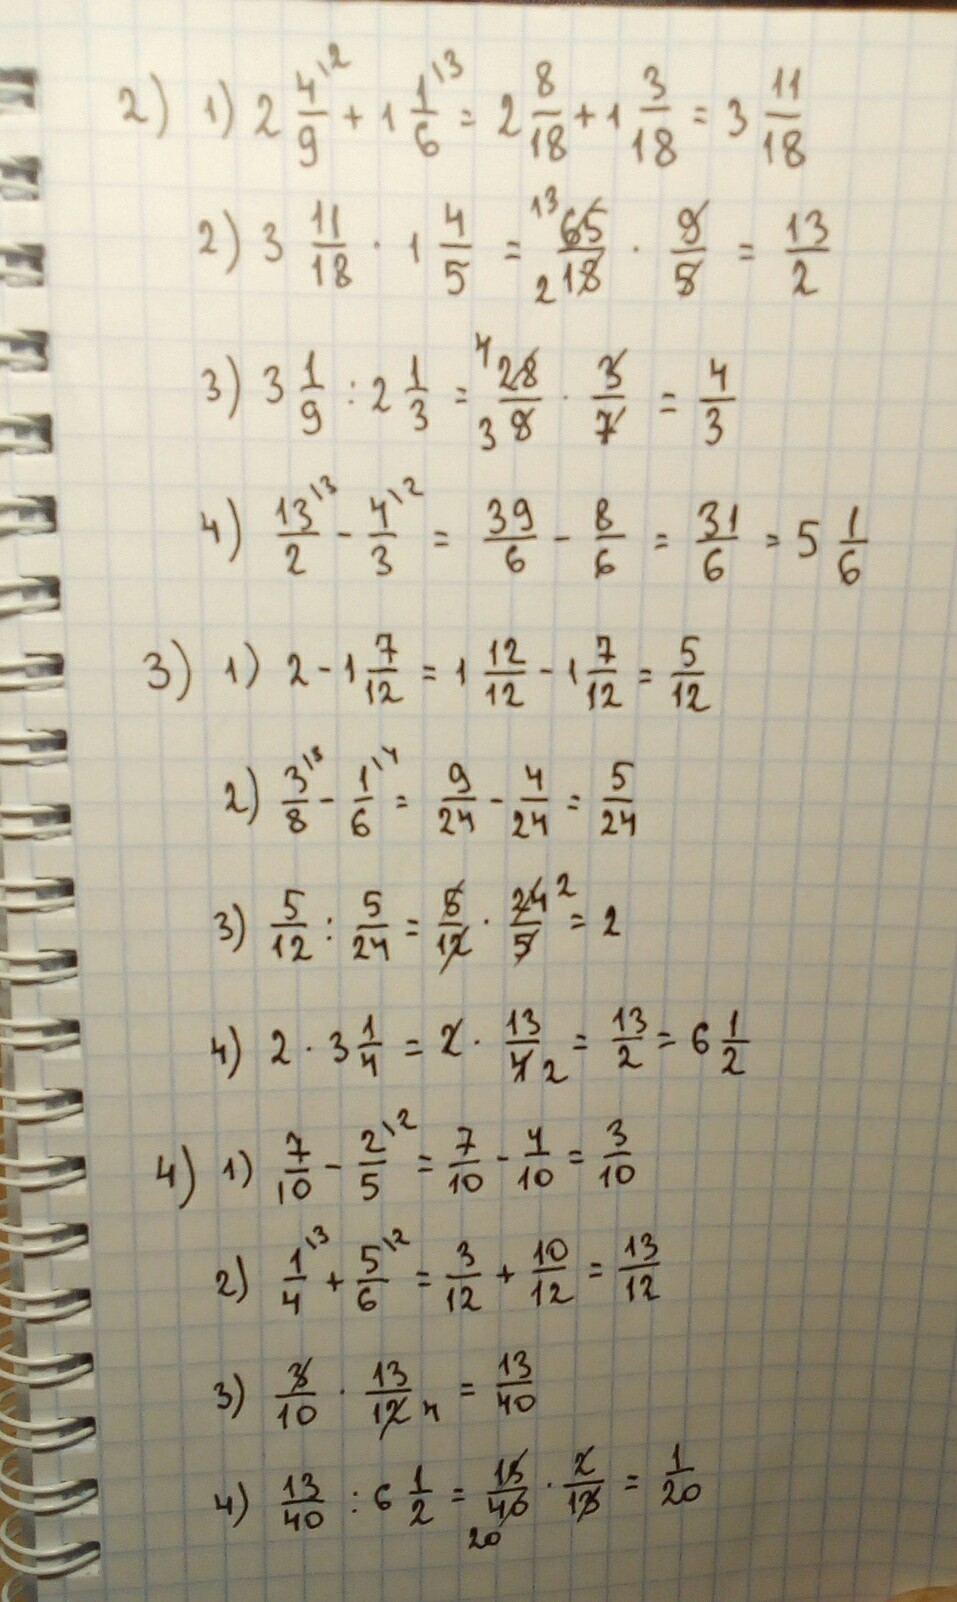 2) 1) 2 4\2/9 + 1 1\3/6 = 2 8/18 + 1 3/18 = 3 11/18
2) 3 11/18 · 1 4/5 = 13 65/2 18 · 9/5 = 13/2
3) 3 1/9 : 2 1/3 = 4 28/3 9 · 3/7 = 4/3
4) 13\3/2 - 4\2/3 = 39/6 - 8/6 = 31/6 = 5 1/6
3) 1) 2 - 1 7/12 = 1 12/12 - 1 7/12 = 5/12
2) 3\3/8 - 1\4/6 = 9/24 - 4/24 = 5/24
3) 5/12 : 5/24 = 5/12 · 24 2/5 = 2
4) 2 · 3 1/4 = 2 · 13/4 2 = 13/2 = 6 1/2
4) 1) 7/10 - 2\2/5 = 7/10 - 4/10 = 3/10
2) 1\3/4 + 5\2/6 = 3/12 + 10/12 = 13/12
3) 3/10 · 13/12 4 = 13/40
4) 13/40 : 6 1/2 = 13/40 20 · 2/13 = 1/20